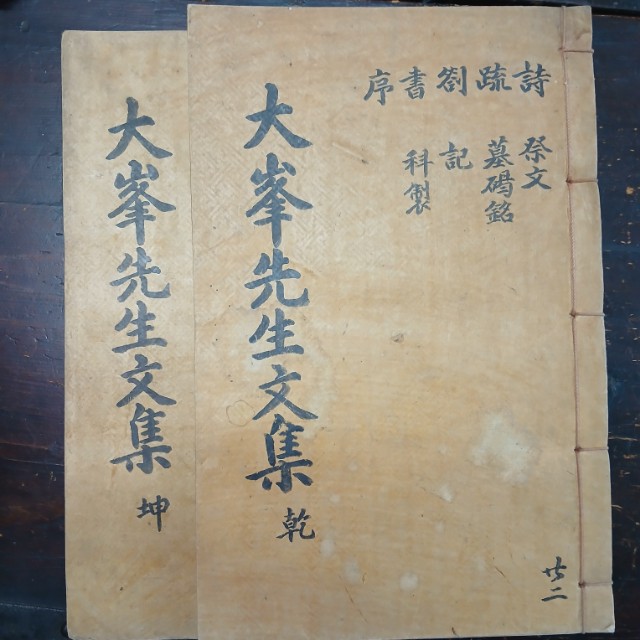 詩 祭文
疏 墓碣銘
劄 記
書 科製
序
大峯先生文集 乾
廿二
大峯先生文集 坤